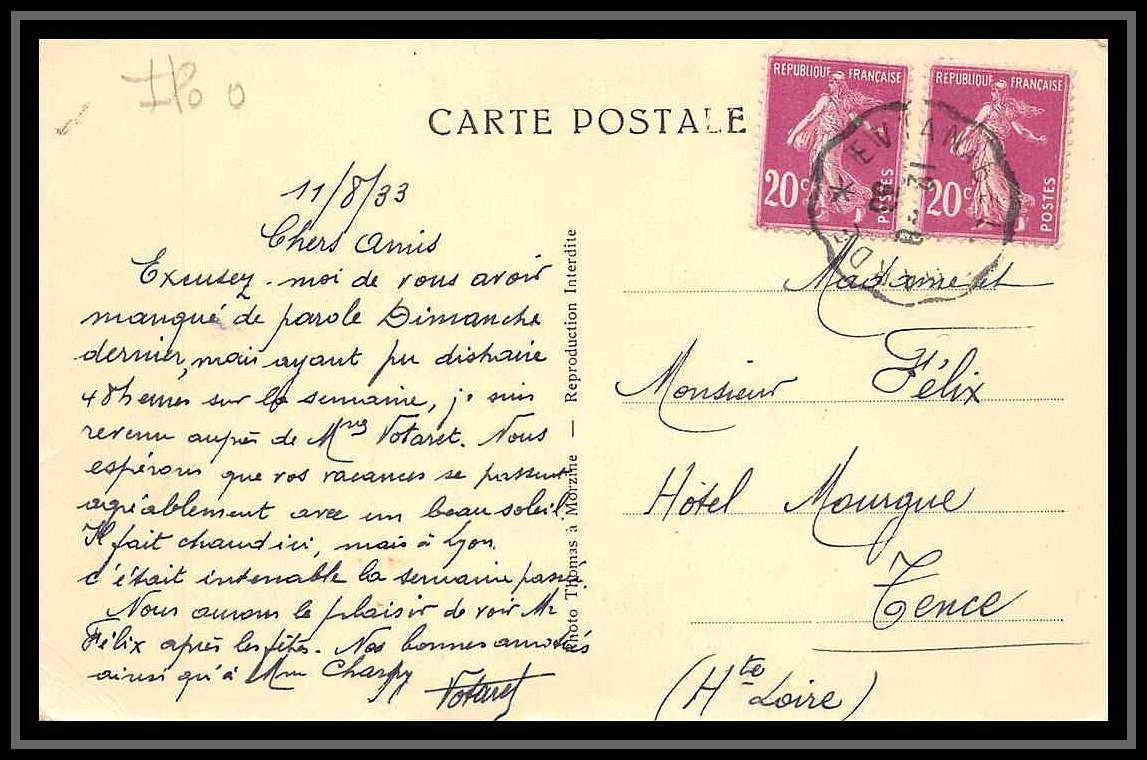 CARTE POSTALE
RÉPUBLIQUE FRANÇAISE
20c
POSTES
RÉPUBLIQUE FRANÇAISE
20c
POSTES
EVIAN
11/8/33
Chers Amis
Excusez-moi de vous avoir
manqué de parole Dimanche
dernier, mais ayant pu distraire
48 heures sur la semaine, je suis
revenu auprès de Votaret. Nous
espérons que vos vacances se passent
agréablement avec un beau soleil
Il fait chaud ici, mais à Lyon
c'était intenable la semaine passé
Nous aurons le plaisir de voir Mr
Félix après les fêtes. Nos bonnes amitiés
ainsi qu'à Mme Charpy
Votaret
Photo Thomas à Morzine — Reproduction Interdite
Madame et
Monsieur Félix
Hôtel Mourgue
Tence
(Hte Loire)